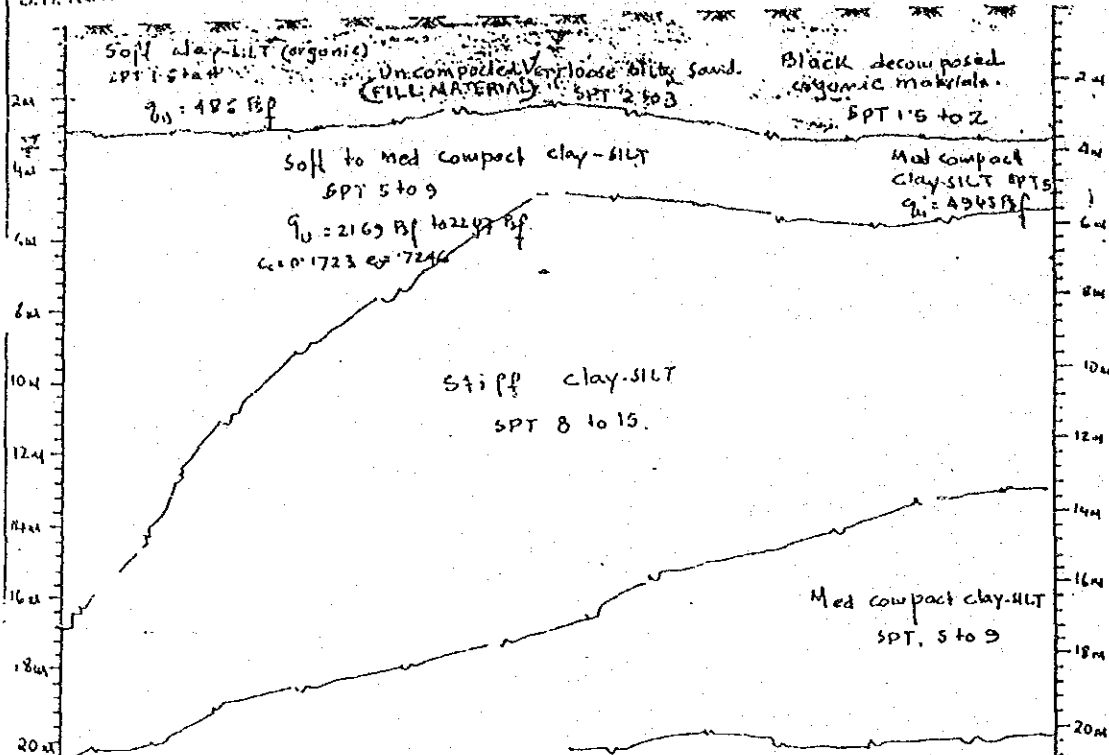 Soft clay-SILT (organic)
SPT 1 Start
qu = 486 Psf
Uncompacted Very loose silty sand.
(FILL MATERIAL) SPT 2 to 3
Black decomposed
organic materials.
SPT 1.5 to 2
Soft to med compact clay-SILT
SPT 5 to 9
qu = 2169 Psf to 2247 Psf
Cc = 0.1723 eo = .7246
Med compact
Clay-SILT SPT 5
qu = 4943 Psf
Stiff clay-SILT
SPT 8 to 15.
Med compact clay-SILT
SPT. 5 to 9
2M
4M
6M
8M
10M
12M
14M
16M
18M
20M
2M
4M
6M
8M
10M
12M
14M
16M
18M
20M